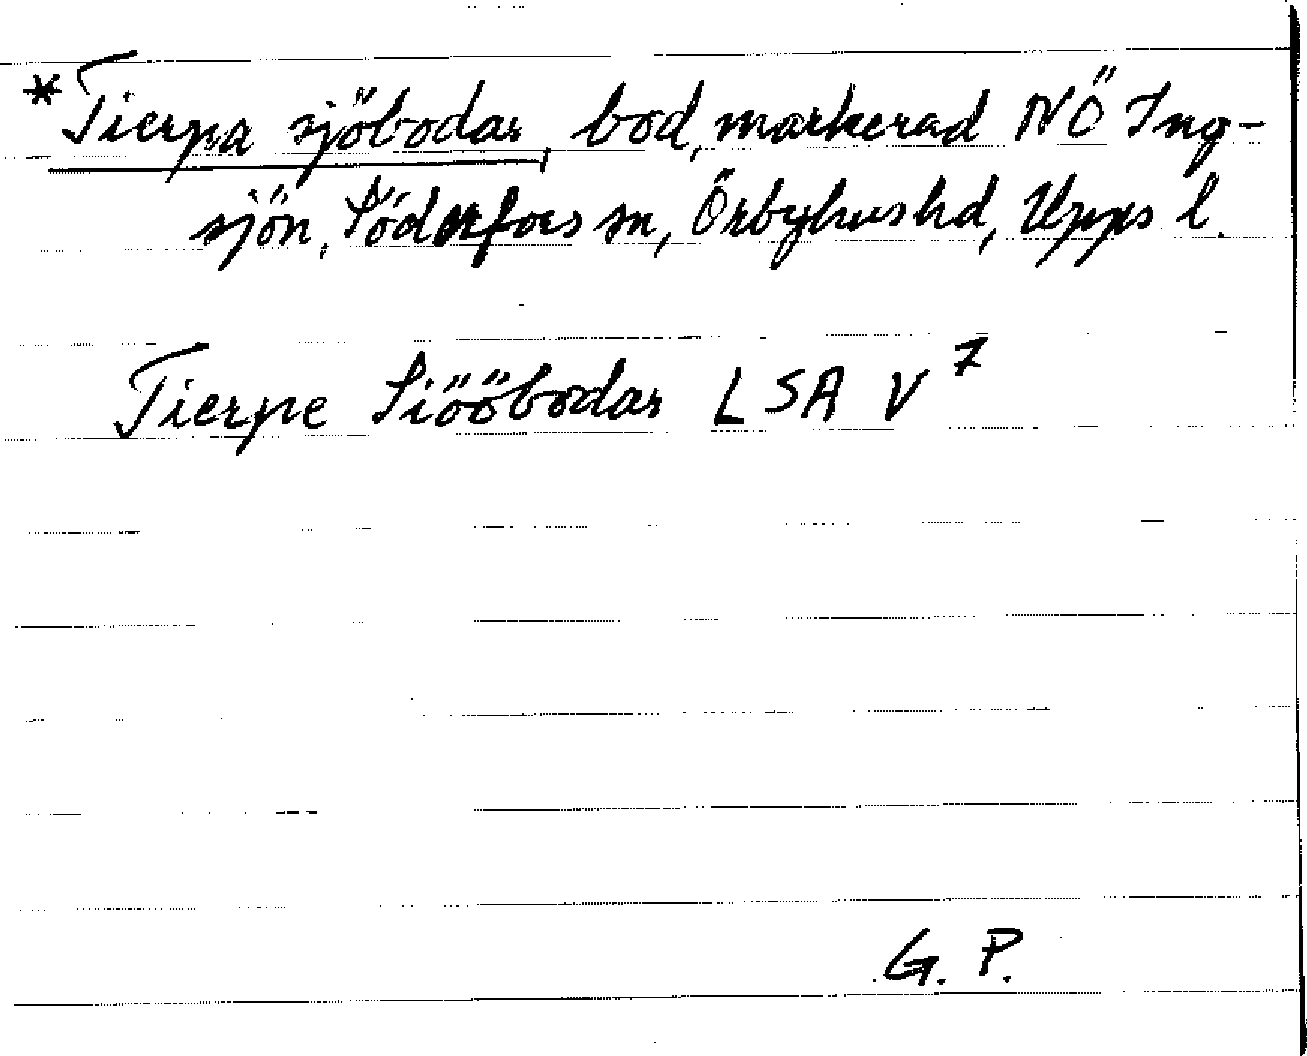 *Tierpa sjöbodar, bod, markerad NÖ Ing-
sjön, Söderfors sn, Örbyhus hd, Upps l.
Tierpe Siööbodar LSA V⁷
G. P.